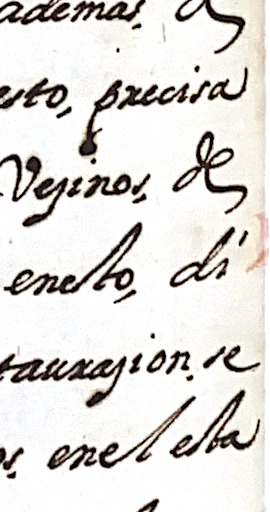 ademas, de
esto, precisa
Vezinos, de
enesto, di
taurazion. se
os, enel esta